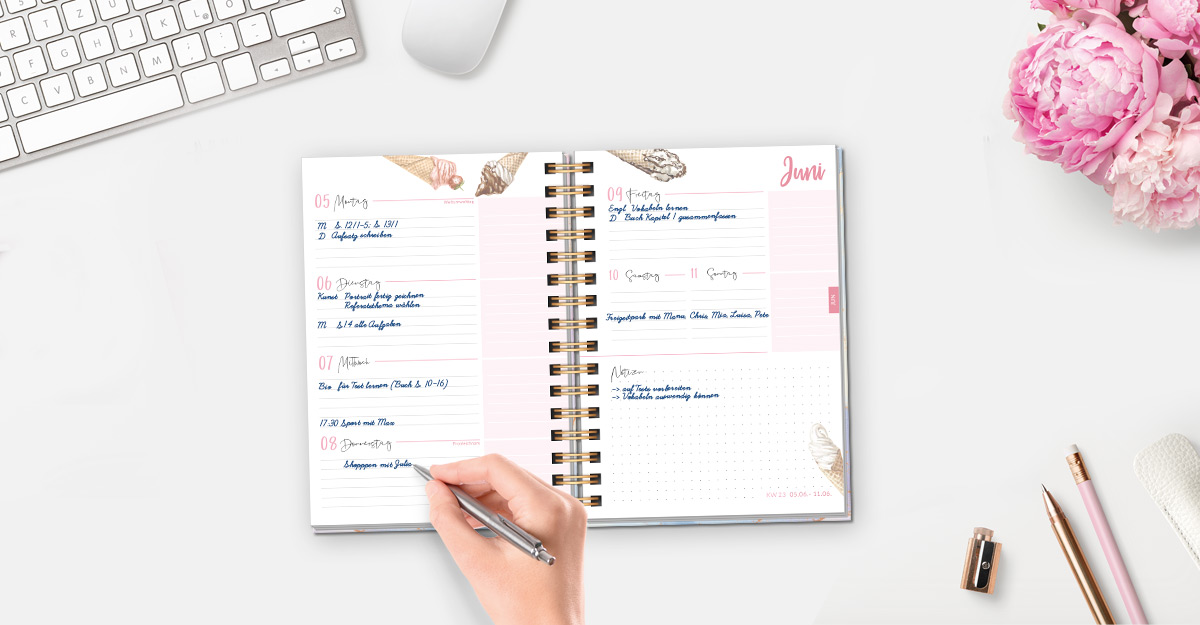 05 Montag
M S. 12/1-5; S. 13/1
D Aufsatz schreiben
06 Dienstag
Kunst Portrait fertig zeichnen
Referatsthema wählen
M S.14 alle Aufgaben
07 Mittwoch
Bio für Test lernen (Buch S. 10-16)
17:30 Sport mit Max
08 Donnerstag
Shopppen mit Julia
Juni
09 Freitag
Engl. Vokabeln lernen
D Buch Kapitel 1 zusammenfassen
10 Samstag 11 Sonntag
JUN
Freizeitpark mit Manu, Chris, Mia, Luisa, Pete
Notizen
-> auf Teste vorbereiten
-> Vokabeln auswendig können
KW 23 05.06. - 11.06.
R T Z U
J K L @
F G H
C V B N M